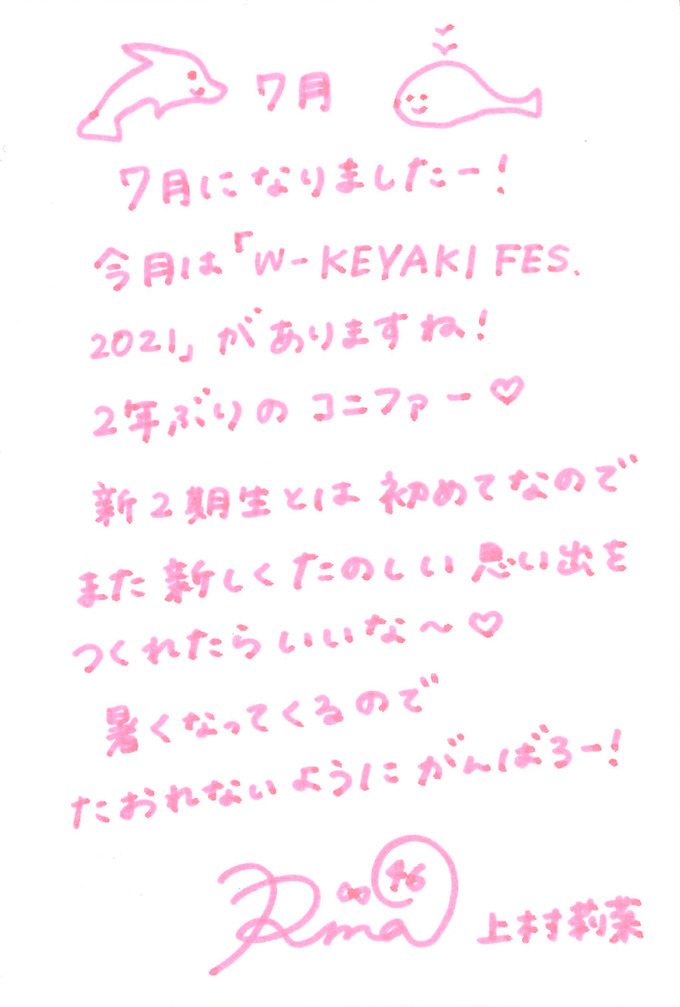 7月
7月になりましたー!
今月は「W-KEYAKI FES.
2021」がありますね!
2年ぶりのコニファー♡
新2期生とは初めてなので
また新しくたのしい思い出を
つくれたらいいな〜♡
暑くなってくるので
たおれないようにがんばろー!
Rina 46
上村莉菜